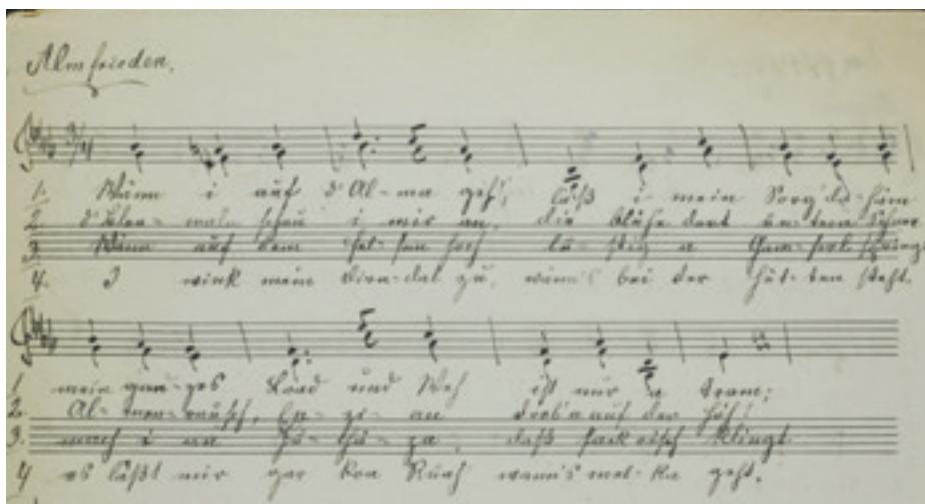 Almfrieden.
3/4
1. Wann i auf d'Al-ma geh', laß i mein Sorg' da-ham
2. schau i mir an, die blühn dort un-term
3. Wann auf dem Fel-sen hoch lu-stig a Gamserl springt
4. I wink mein Dirn-dal zu, wann's bei der Hüt-ten steht.
1. mein gan-zes Load und Weh ist nur a Tram;
2. Al-men-rausch, En-zi-an drob'n auf der Höh!
3. mach i an daß klingt
4. es laßt mir gar koa Ruah wann's mel-ka geht.